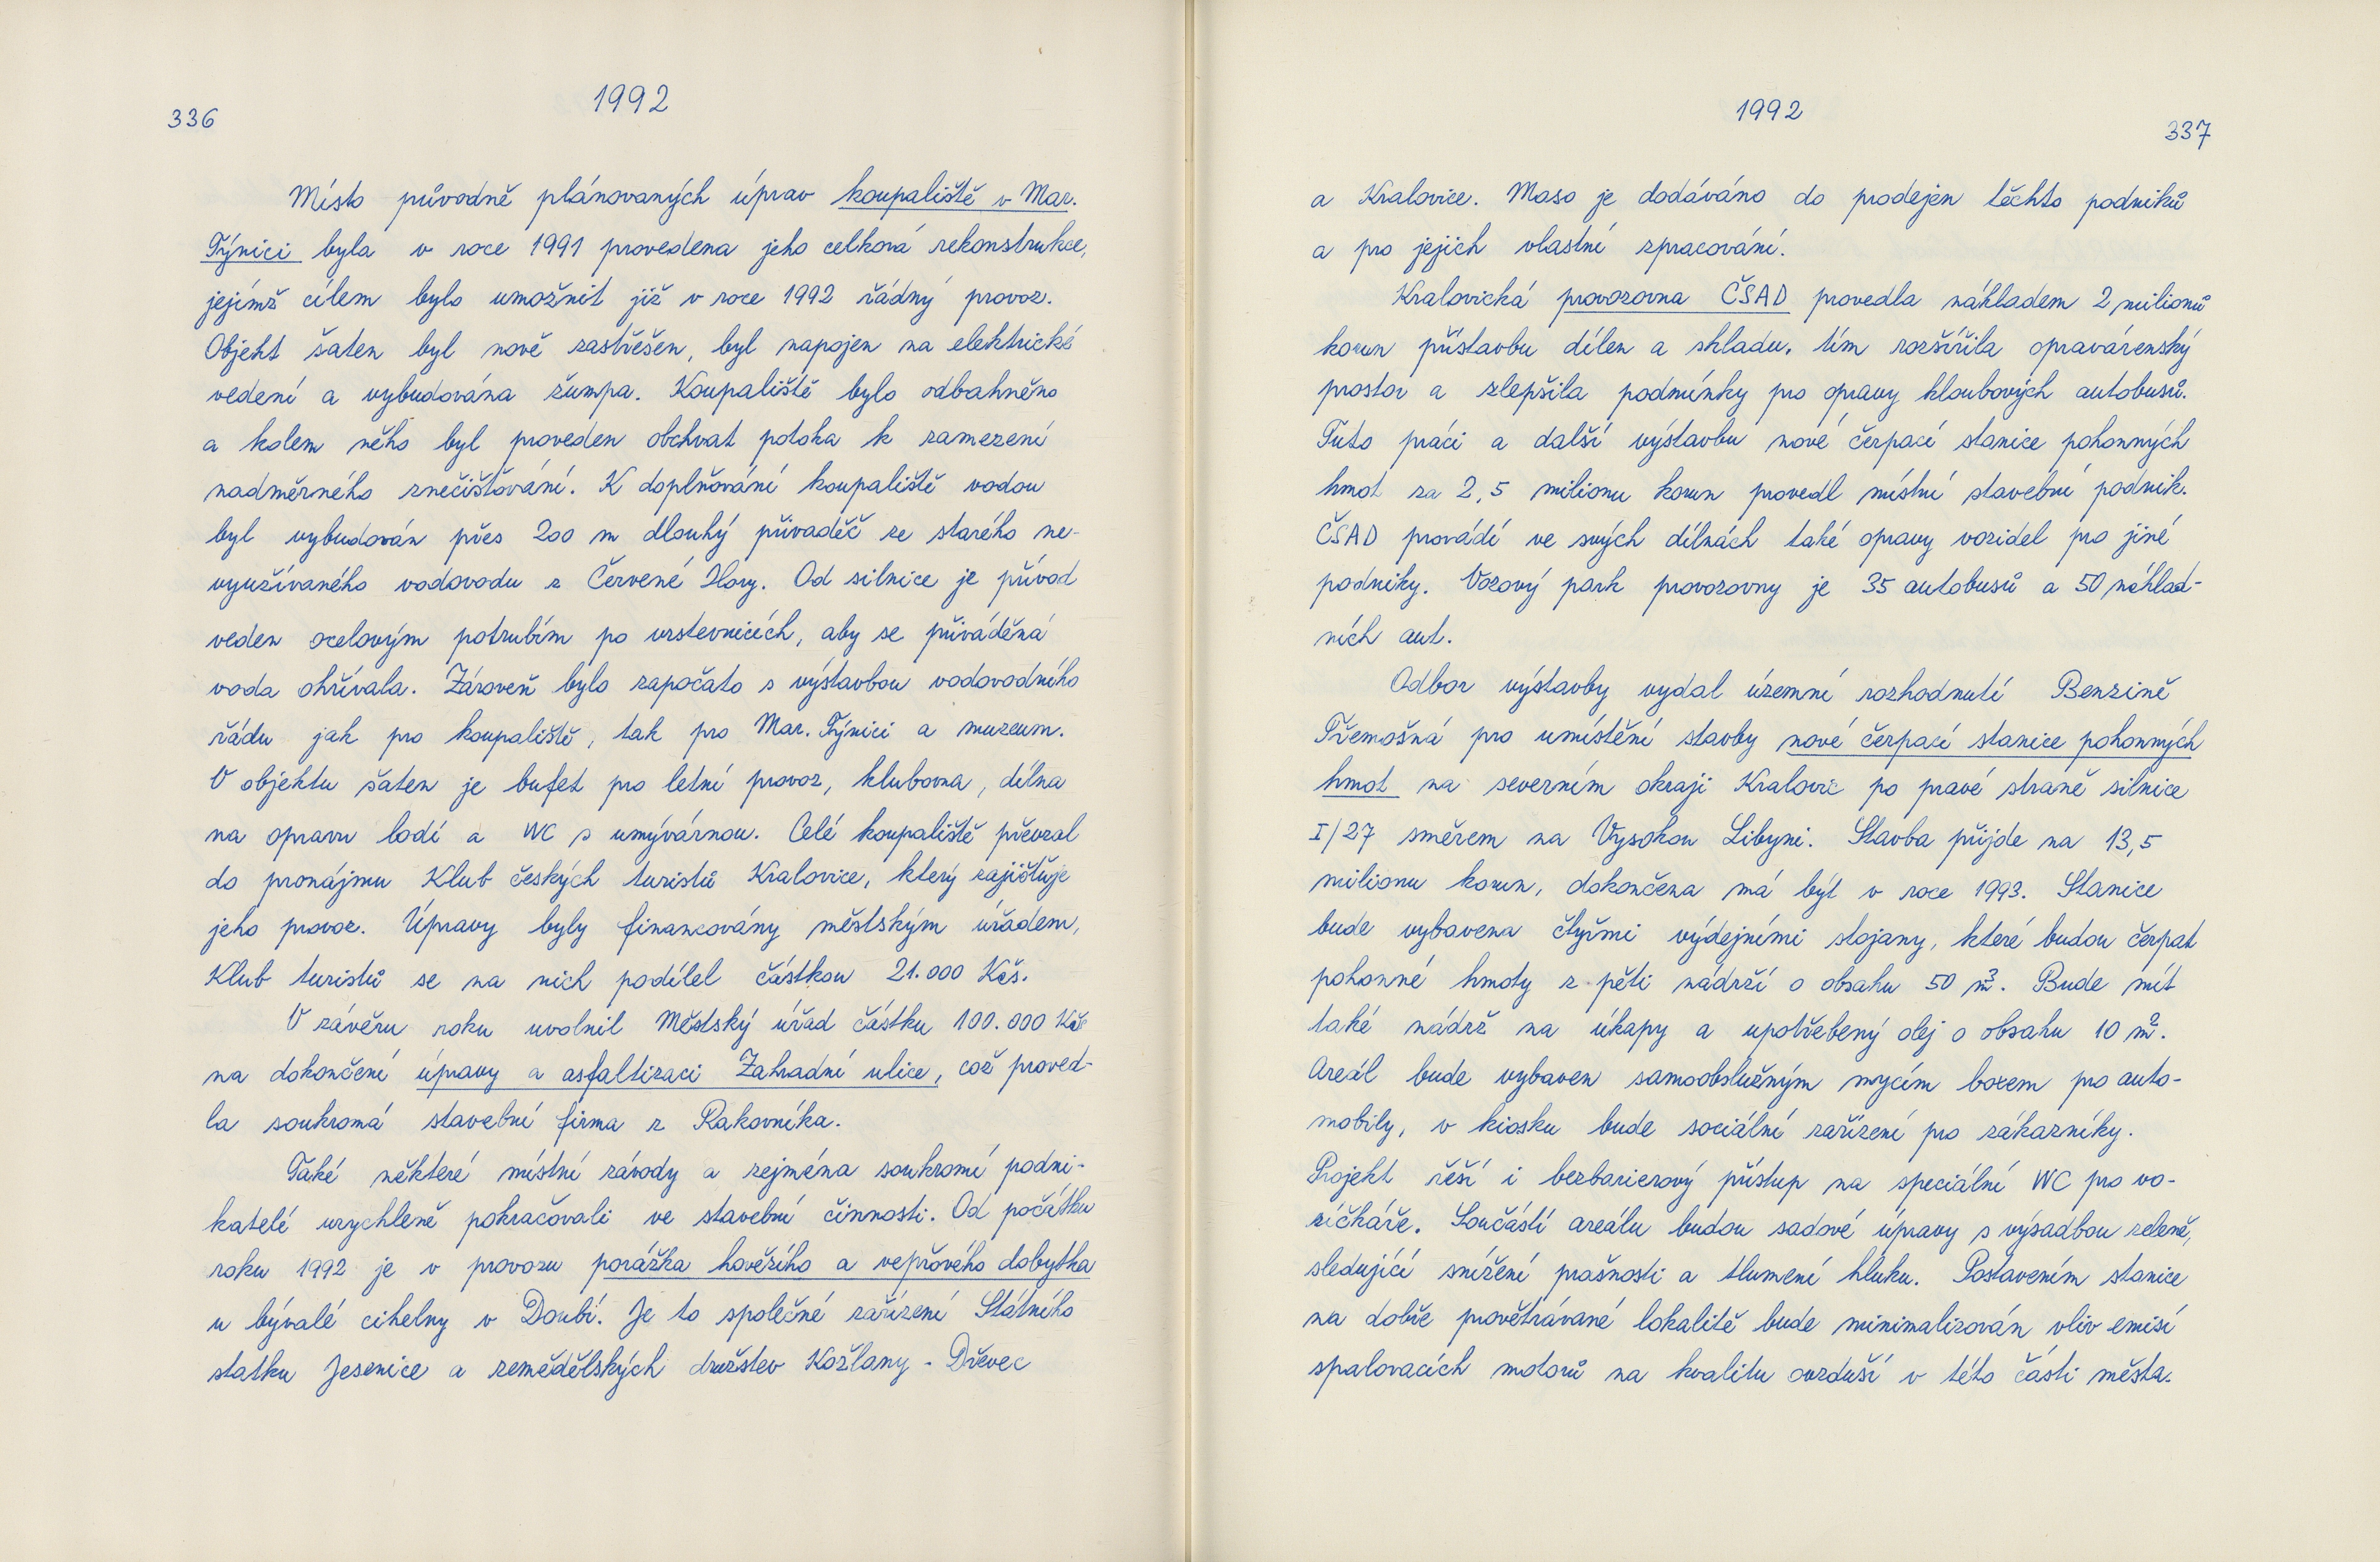 336
1992
Místo původně plánovaných úprav koupaliště v Mar.
Týnici byla v roce 1991 provedena jeho celková rekonstrukce,
jejímž cílem bylo umožnit již v roce 1992 řádný provoz.
Objekt šaten byl nově zastřešen, byl napojen na elektrické
vedení a vybudována žumpa. Koupaliště bylo odbahněno
a kolem něho byl proveden obchvat potoka k zamezení
nadměrného znečišťování. K doplňování koupaliště vodou
byl vybudován přes 200 m dlouhý přivaděč ze starého ne-
využívaného vodovodu z Červené Hory. Od silnice je přívod
veden ocelovým potrubím po vrstevnicích, aby se přiváděná
voda ohřívala. Zároveň bylo započato s výstavbou vodovodního
řádu jak pro koupaliště, tak pro Mar. Týnici a muzeum.
V objektu šaten je bufet pro letní provoz, klubovna, dílna
na opravu lodí a WC s umývárnou. Celé koupaliště převzal
do pronájmu Klub českých turistů Kralovice, který zajišťuje
jeho provoz. Úpravy byly financovány městským úřadem,
Klub turistů se na nich podílel částkou 21.000 Kčs.
V závěru roku uvolnil Městský úřad částku 100.000 Kčs
na dokončení úpravy a asfaltizaci Zahradní ulice, což proved-
la soukromá stavební firma z Rakovníka.
Také některé místní závody a zejména soukromí podni-
katelé urychleně pokračovali ve stavební činnosti. Od počátku
roku 1992 je v provozu porážka hovězího a vepřového dobytka
u bývalé cihelny v Doubí. Je to společné zařízení Státního
statku Jesenice a zemědělských družstev Kožlany - Dřevec
1992
337
a Kralovice. Maso je dodáváno do prodejen těchto podniků
a pro jejich vlastní zpracování.
Kralovická provozovna ČSAD provedla nákladem 2 milionů
korun přístavbu dílen a skladu, tím rozšířila opravárenský
prostor a zlepšila podmínky pro opravy kloubových autobusů.
Tuto práci a další výstavbu nové čerpací stanice pohonných
hmot za 2,5 milionu korun provedl místní stavební podnik.
ČSAD provádí ve svých dílnách také opravy vozidel pro jiné
podniky. Vozový park provozovny je 35 autobusů a 50 náklad-
ních aut.
Odbor výstavby vydal územní rozhodnutí Benzině
Třemošná pro umístění stavby nové čerpací stanice pohonných
hmot na severním okraji Kralovic po pravé straně silnice
I/27 směrem na Vysokou Libyni. Stavba přijde na 13,5
milionu korun, dokončena má být v roce 1993. Stanice
bude vybavena čtyřmi výdejními stojany, které budou čerpat
pohonné hmoty z pěti nádrží o obsahu 50 m³. Bude mít
také nádrž na úkapy a upotřebený olej o obsahu 10 m³.
Areál bude vybaven samoobslužným mycím boxem pro auto-
mobily, v kiosku bude sociální zařízení pro zákazníky.
Projekt řeší i bezbarierový přístup na speciální WC pro vo-
zíčkáře. Součástí areálu budou sadové úpravy s výsadbou zeleně,
sledující snížení prašnosti a tlumení hluku. Postavením stanice
na dobře provětrávané lokalitě bude minimalizován vliv emisí
spalovacích motorů na kvalitu ovzduší v této části města.